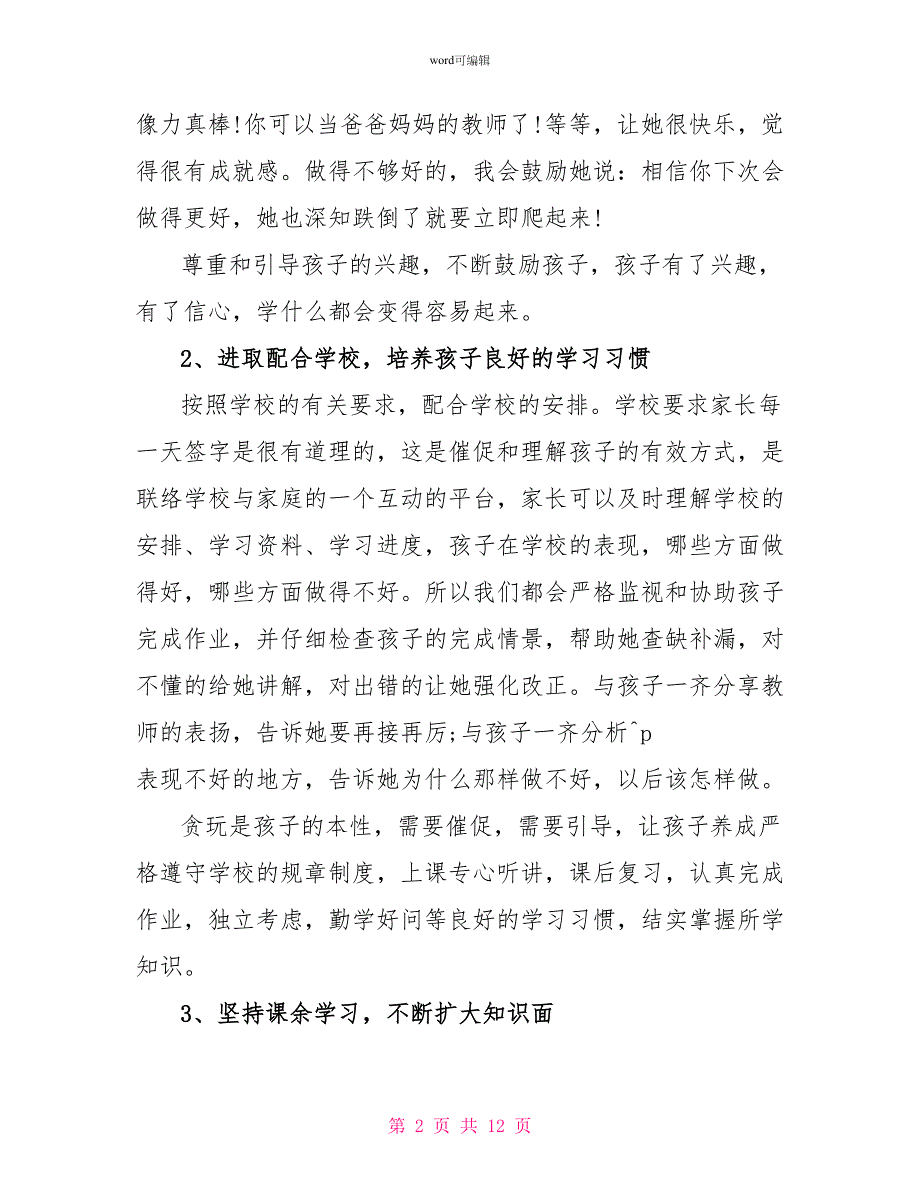 word可编辑
像力真棒!你可以当爸爸妈妈的教师了!等等，让她很快乐，觉
得很有成就感。做得不够好的，我会鼓励她说：相信你下次会
做得更好，她也深知跌倒了就要立即爬起来!
尊重和引导孩子的兴趣，不断鼓励孩子，孩子有了兴趣，
有了信心，学什么都会变得容易起来。
2、进取配合学校，培养孩子良好的学习习惯
按照学校的有关要求，配合学校的安排。学校要求家长每
一天签字是很有道理的，这是催促和理解孩子的有效方式，是
联络学校与家庭的一个互动的平台，家长可以及时理解学校的
安排、学习资料、学习进度，孩子在学校的表现，哪些方面做
得好，哪些方面做得不好。所以我们都会严格监视和协助孩子
完成作业，并仔细检查孩子的完成情景，帮助她查缺补漏，对
不懂的给她讲解，对出错的让她强化改正。与孩子一齐分享教
师的表扬，告诉她要再接再厉;与孩子一齐分析^p
表现不好的地方，告诉她为什么那样做不好，以后该怎样做。
贪玩是孩子的本性，需要催促，需要引导，让孩子养成严
格遵守学校的规章制度，上课专心听讲，课后复习，认真完成
作业，独立考虑，勤学好问等良好的学习习惯，结实掌握所学
知识。
3、坚持课余学习，不断扩大知识面
第 2 页 共 12 页